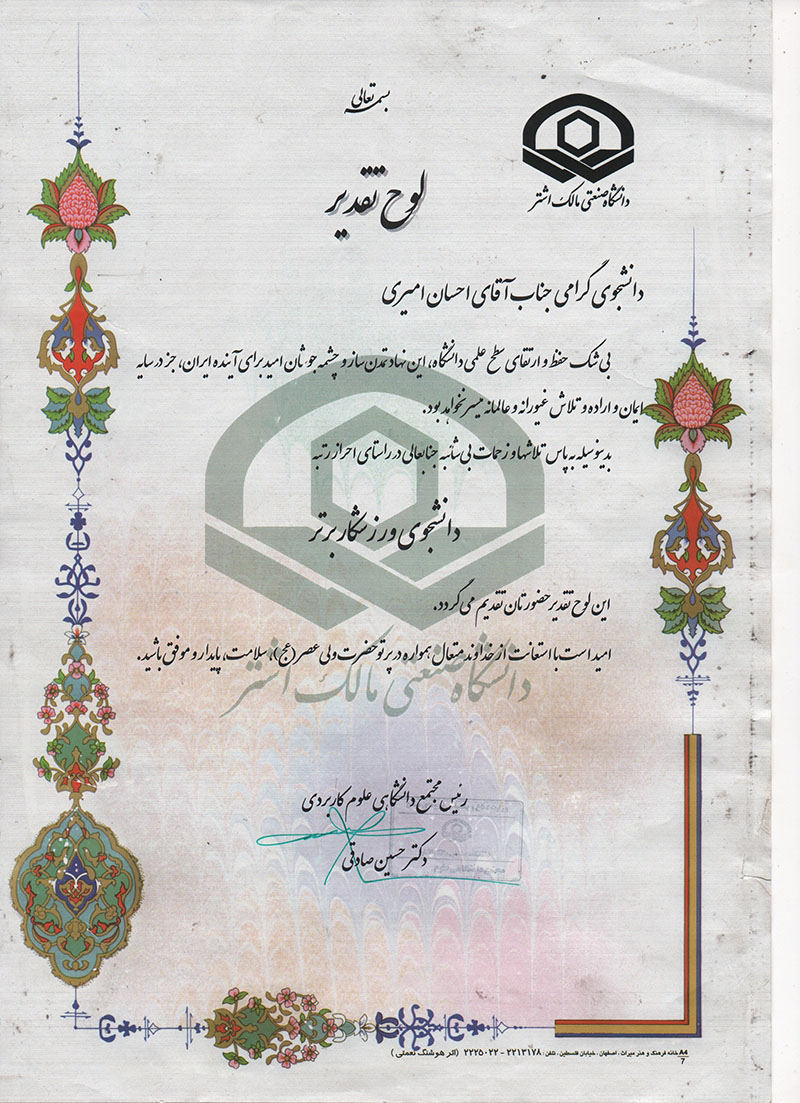 بسمه تعالی
دانشگاه صنعتی مالک اشتر
لوح تقدیر
دانشجوی گرامی جناب آقای احسان امیری
بی شک حفظ و ارتقای سطح علمی دانشگاه، این نهاد تمدن ساز و چشمه جوشان امید برای آینده ایران، جز در سایه
ایمان و اراده و تلاش غیورانه و عالمانه میسر نخواهد بود.
بدینوسیله به پاس تلاشها و زحمات بی شائبه جنابعالی در راستای احراز رتبه
دانشجوی ورزشکار برتر
این لوح تقدیر حضورتان تقدیم می گردد.
امید است با استعانت از خداوند متعال همواره در پرتو حضرت ولی عصر (عج)، سلامت، پایدار و موفق باشید.
دانشگاه صنعتی مالک اشتر
رئیس مجتمع دانشگاهی علوم کاربردی
دکتر حسین صادقی
A4 خانه فرهنگ و هنر میراث ، اصفهان ، خیابان فلسطین ، تلفن : ۲۲۱۳۱۷۸ - ۲۲۲۵۰۲۲ (اثر هوشنگ نعمتی)
7